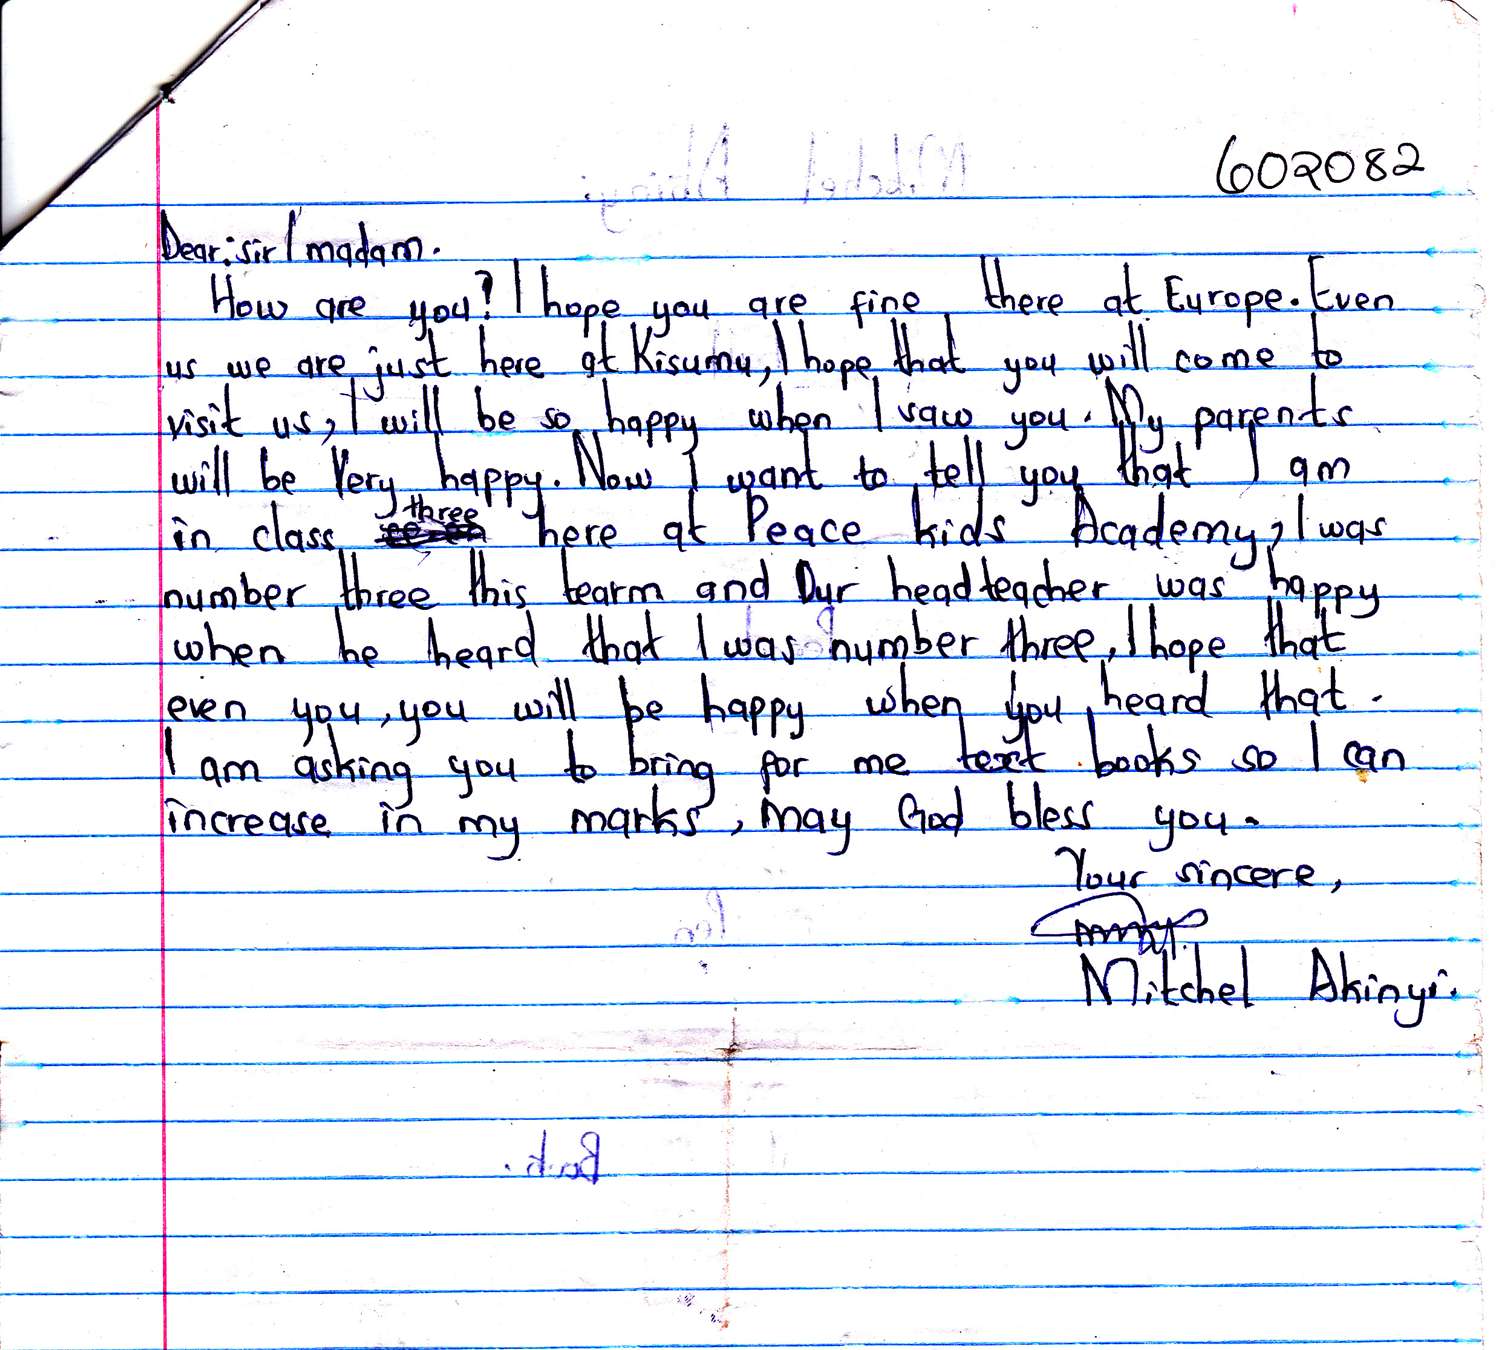 602082
Dear: sir / madam.
How are you? I hope you are fine there at Europe. Even
us we are just here at Kisumu, I hope that you will come to
visit us, I will be so happy when I saw you. My parents
will be Very happy. Now I want to tell you that I am
in class three here at Peace kids Academy, I was
number three this tearm and Our headteacher was happy
when he heard that I was number three, I hope that
even you, you will be happy when you heard that.
I am asking you to bring for me text books so I can
increase in my marks, may God bless you.
Your sincere,
Mitchel Akinyi.